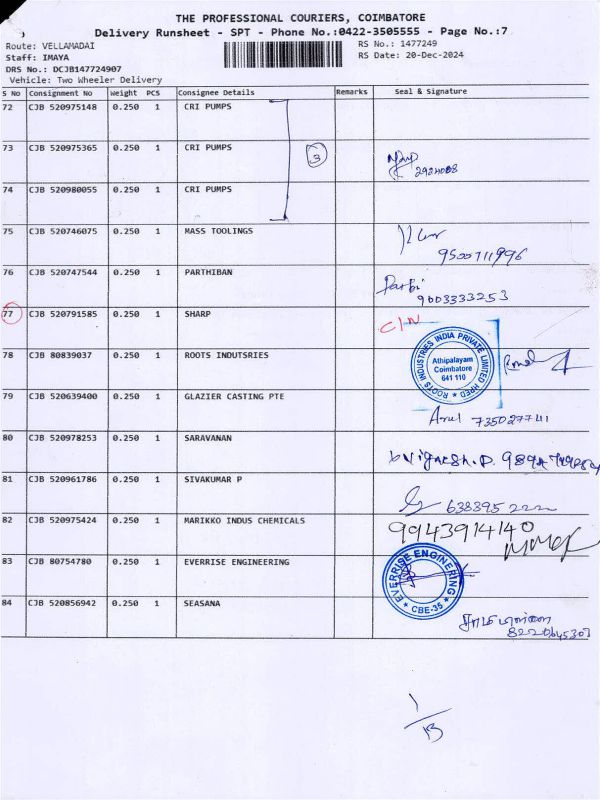 THE PROFESSIONAL COURIERS, COIMBATORE
Delivery Runsheet - SPT - Phone No.:0422-3505555 - Page No.:7
Route: VELLAMADAI RS No.: 1477249
Staff: IMAYA RS Date: 20-Dec-2024
DRS No.: DCJB147724907
Vehicle: Two Wheeler Delivery
S No Consignment No Weight PCS Consignee Details Remarks Seal & Signature
72 CJB 520975148 0.250 1 CRI PUMPS
73 CJB 520975365 0.250 1 CRI PUMPS 3
74 CJB 520980055 0.250 1 CRI PUMPS
75 CJB 520746075 0.250 1 MASS TOOLINGS
9500711996
76 CJB 520747544 0.250 1 PARTHIBAN
9003333253
77 CJB 520791585 0.250 1 SHARP C/N
78 CJB 80839037 0.250 1 ROOTS INDUTSRIES
ROOTS INDUSTRIES INDIA PRIVATE LIMITED HPED
Athipalayam
Coimbatore
641 110
79 CJB 520639400 0.250 1 GLAZIER CASTING PTE
Arul
80 CJB 520978253 0.250 1 SARAVANAN
81 CJB 520961786 0.250 1 SIVAKUMAR P
638395 222
82 CJB 520975424 0.250 1 MARIKKO INDUS CHEMICALS
9943914140
83 CJB 80754780 0.250 1 EVERRISE ENGINEERING
EVERRISE ENGINEERING
CBE-35
84 CJB 520856942 0.250 1 SEASANA
8220645303
1/13